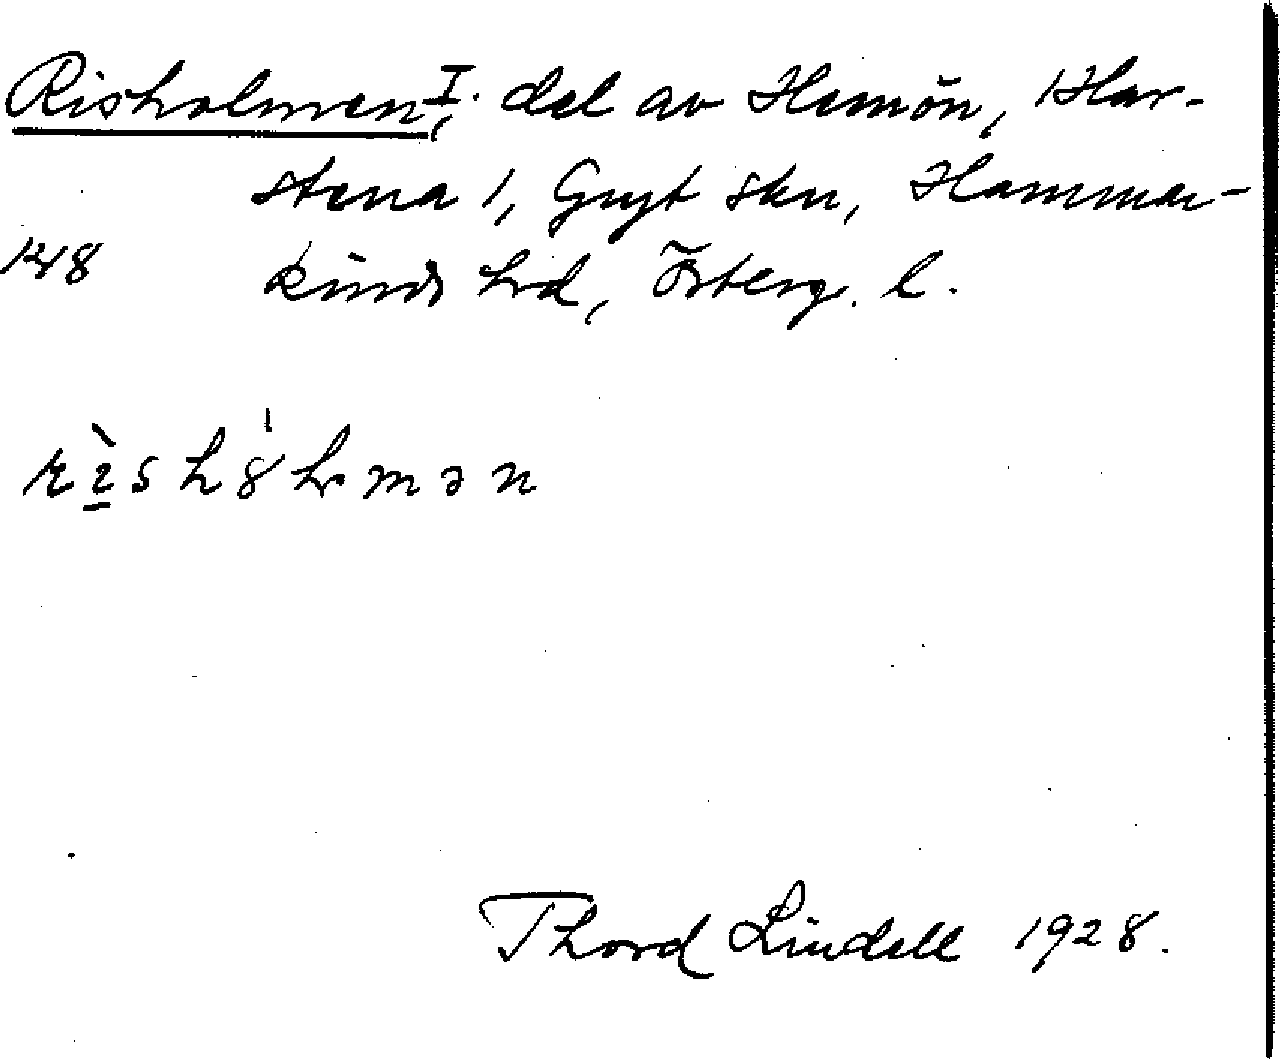 Risholmen, I. del av Hemön, Har-
stena 1, Gryt skn, Hammar-
148 kinds hrd, Österg. l.
Thord Lindell 1928.